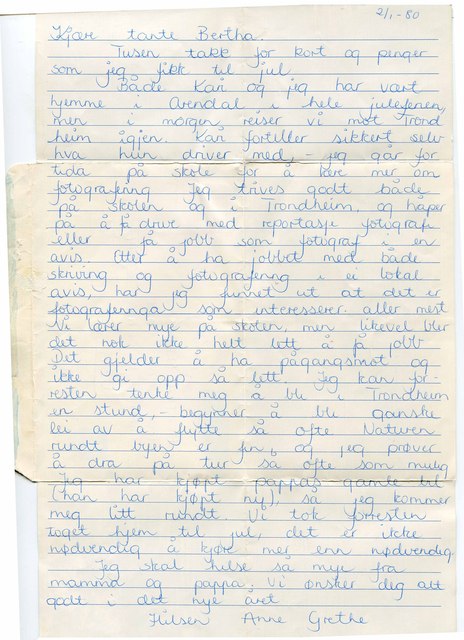 2/1-80
Kjære tante Bertha.
Tusen takk for kort og penger
som jeg fikk til jul.
Både Kari og jeg har vært
hjemme i Arendal i hele juleferien,
men i morgen reiser vi mot Trond
heim igjen. Kari forteller sikkert selv
hva hun driver med, - jeg går for
tida på skole for å lære mer om
fotografering. Jeg trives godt både
på skolen og i Trondheim, og håper
på å få drive med reportasje fotografi
eller få jobb som fotograf i en
avis. Etter å ha jobbet med både
skriving og fotografering i ei lokal
avis, har jeg funnet ut at det er
fotograferinga som interesserer aller mest
Vi lærer mye på skolen, men likevel blir
det nok ikke helt lett å få jobb
Det gjelder å ha pågangsmot og
ikke gi opp så lett. Jeg kan for-
resten tenke meg å bli i Trondheim
en stund, - begynner å bli ganske
lei av å flytte så ofte Naturen
rundt byen er fin, og jeg prøver
å dra på tur så ofte som mulig
Jeg har kjøpt pappas gamle bil
(han har kjøpt ny), så jeg kommer
meg litt rundt. Vi tok forresten
toget hjem til jul, det er ikke
nødvendig å kjøre mer enn nødvendig.
Jeg skal hilse så mye fra
mamma og pappa. Vi ønsker deg alt
godt i det nye året
Hilsen Anne Grethe